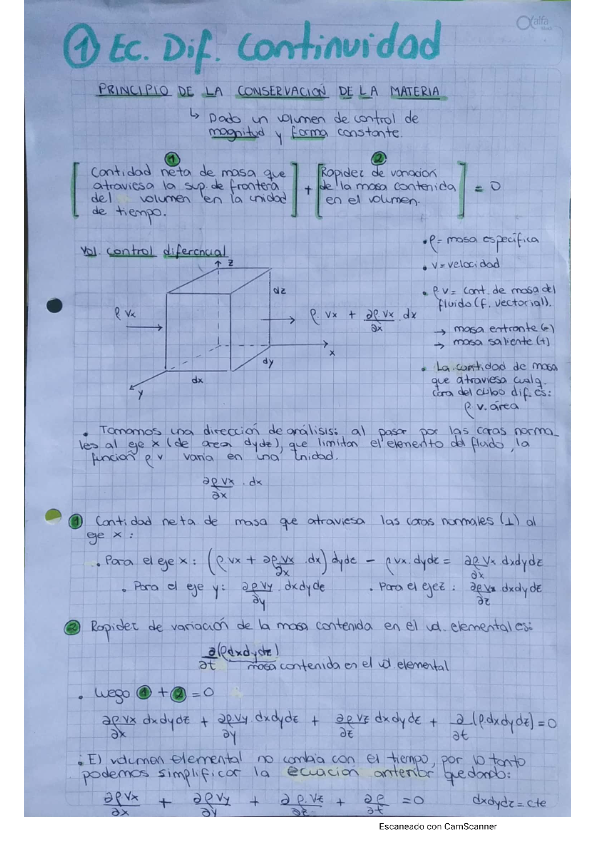 αalfa
① Ec. Dif. Continuidad
PRINCIPIO DE LA CONSERVACION DE LA MATERIA
↳ Dado un volumen de control de
magnitud y forma constante.
① ②
[Cantidad neta de masa que atraviesa la sup. de frontera del volumen en la unidad de tiempo.] + [Rapidez de variación de la masa contenida en el volumen.] = 0
Vol. control diferencial
z
dz
ρ vx
ρ vx + ∂ρvx/∂x . dx
x
dy
dx
y
• ρ = masa específica
• v = velocidad
• ρ v = cant. de masa del
fluido (f. vectorial).
→ masa entrante (-)
→ masa saliente (+)
• La cantidad de masa
que atraviesa cualq.
cara del cubo dif. es:
ρ v. área
• Tomamos una dirección de análisis: al pasar por las caras norma-
les al eje x (de area dydz), que limitan el elemento del fluido, la
función ρ v varia en una unidad.
∂ρvx/∂x . dx
① Cantidad neta de masa que atraviesa las caras normales (⊥) al
eje x:
• Para el eje x: (ρ vx + ∂ρvx/∂x . dx) dydz - ρvx. dydz = ∂ρvx/∂x dxdydz
• Para el eje y: ∂ρvy/∂y . dxdydz • Para el eje z: ∂ρvz/∂z dxdydz
② Rapidez de variación de la masa contenida en el vol. elemental es:
∂(ρdxdydz)/∂t
masa contenida en el vol elemental
• Luego ① + ② = 0
∂ρvx/∂x dxdydz + ∂ρvy/∂y dxdydz + ∂ρvz/∂z dxdydz + ∂/∂t (ρdxdydz) = 0
• El volumen elemental no cambia con el tiempo, por lo tanto
podemos simplificar la ecuación anterior quedando:
∂ρvx/∂x + ∂ρvy/∂y + ∂ρ.vz/∂z + ∂ρ/∂t = 0 dxdydz = cte
Escaneado con CamScanner